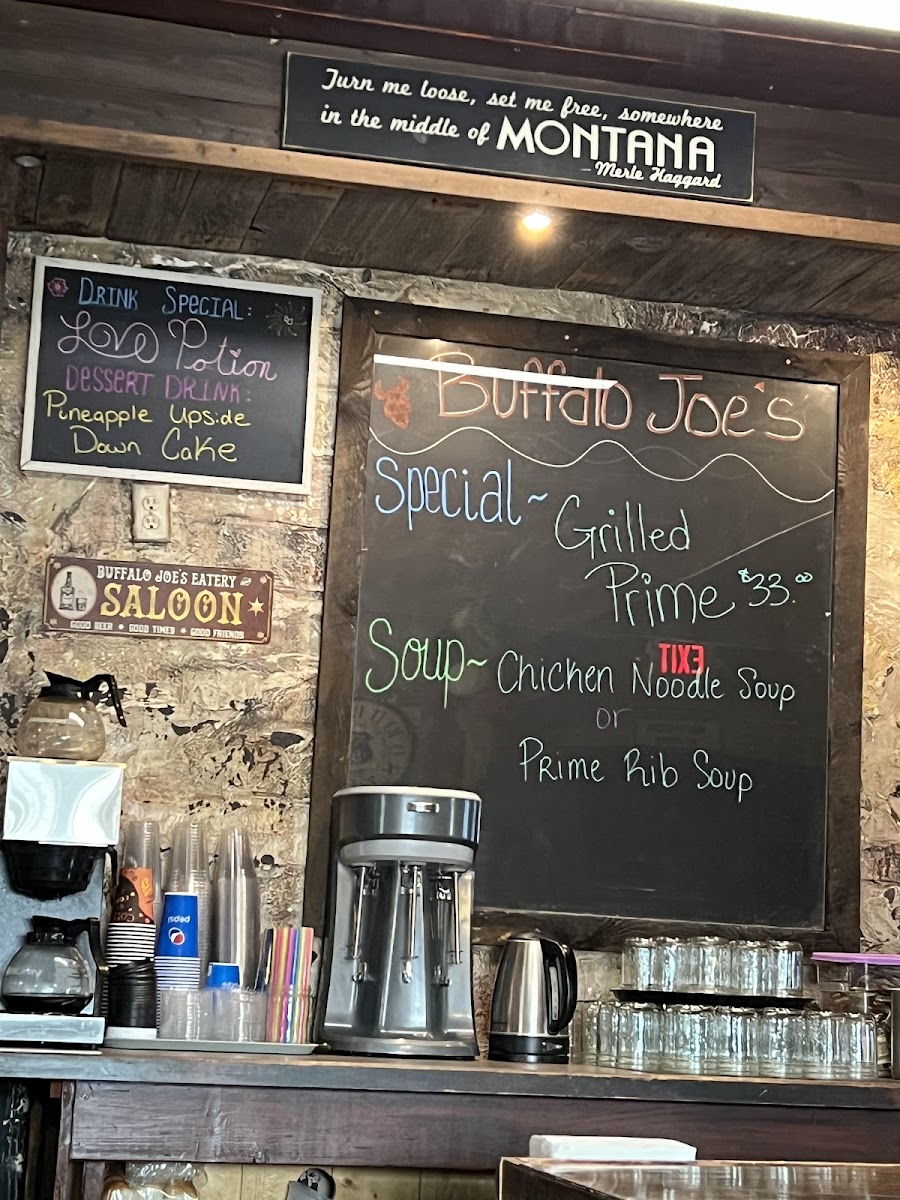 Turn me loose, set me free, somewhere
in the middle of MONTANA
- Merle Haggard
DRINK SPECIAL:
Love Potion
DESSERT DRINK:
Pineapple Upside
Down Cake
Buffalo Joe's
Special~ Grilled
Prime $33.00
BUFFALO JOE'S EATERY
SALOON
BEER • GOOD TIMES • GOOD FRIENDS
Soup~ Chicken Noodle Soup
EXIT
or
Prime Rib Soup
pepsi